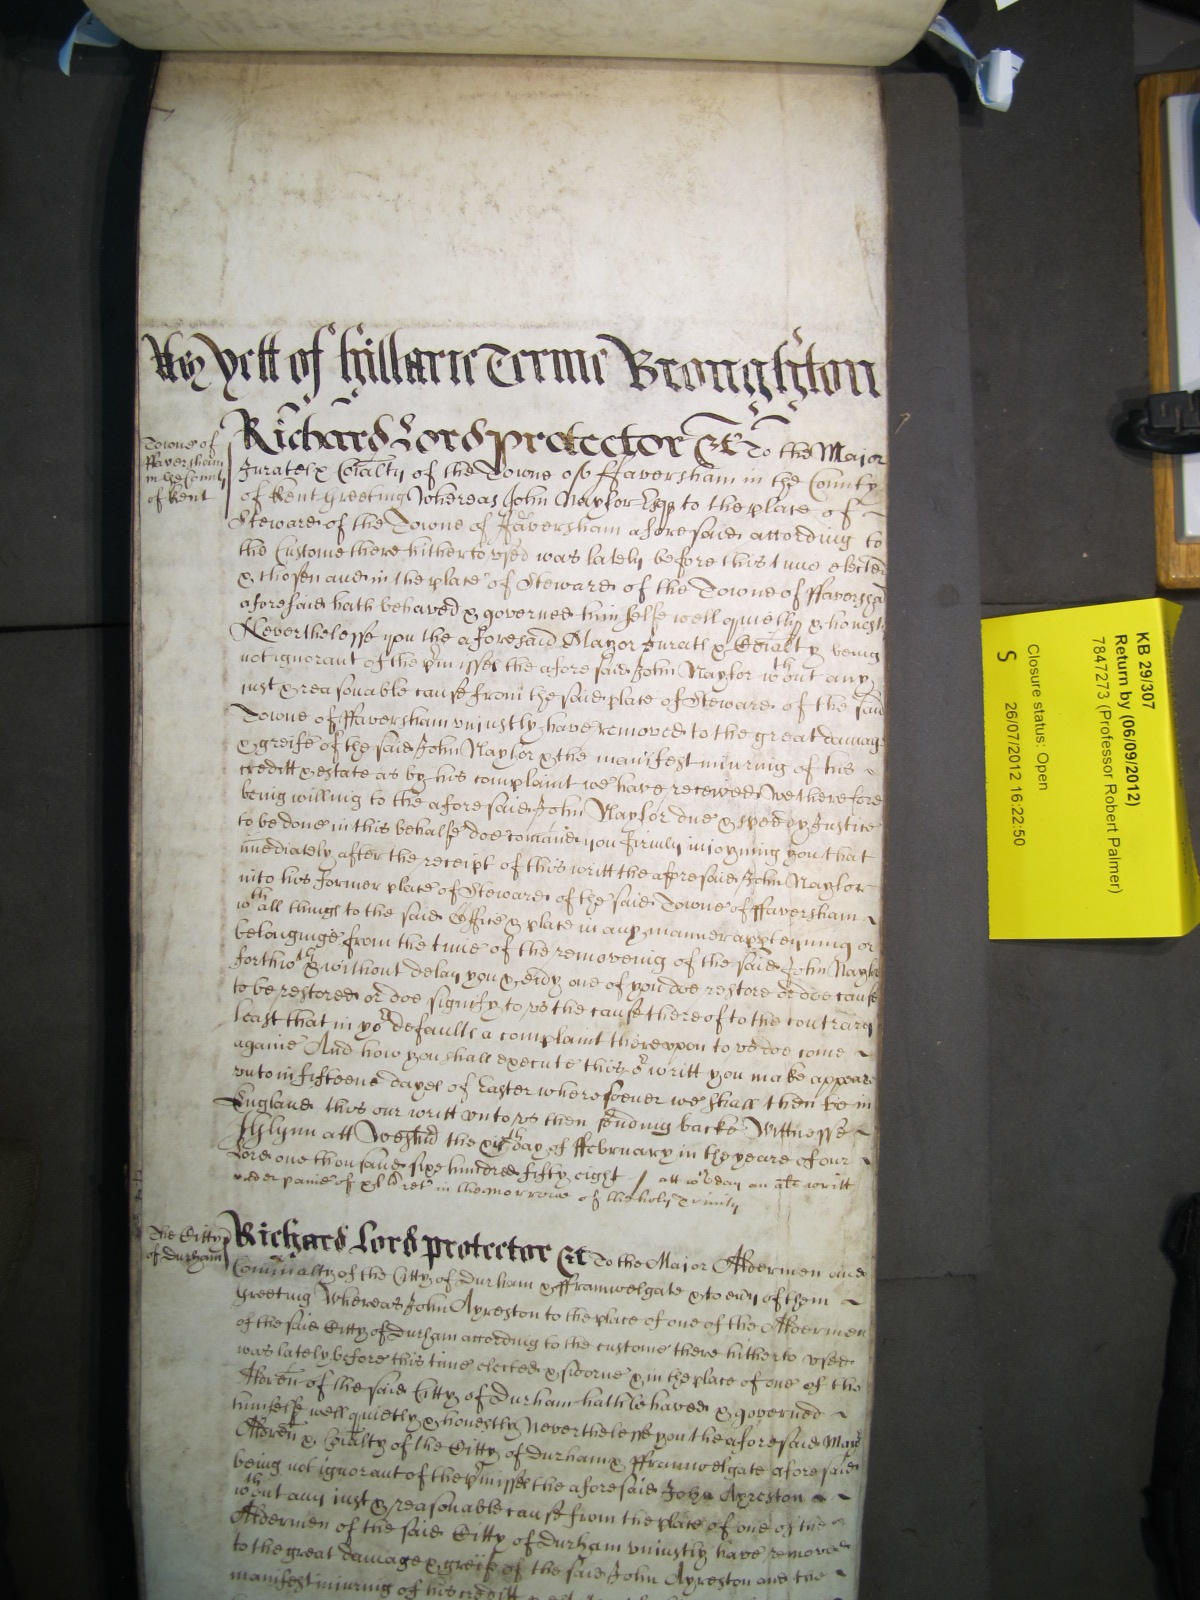 Yett of Hillarie Terme Broughton
Towne of
ffaversham
in the County
of Kent
Richard Lord protector &c To the Major
Jurates & Coialty of the Towne of ffaversham in the County
of Kent Greeting Whereas John Naylor Esqr to the place of
Steward of the Towne of ffaversham aforesaid according to
the Custome there hitherto vsed was lately before this time elected
& chosen and in the place of Steward of the Towne of ffaversha
aforesaid hath behaved & governed himselfe well quietly & honestly
Neverthelesse you the aforesaid Mayor Jurats & Coialty being
not ignorant of the p'misses the aforesaid John Naylor wthout any
just & reasonable cause from the said place of Steward of the said
Towne of ffaversham vniustly have removed to the great damage
& greife of the said John Naylor & the manifest iniuring of his
creditt & estate as by his complaint we have receeved We therefore
being willing to the aforesaid John Naylor due & speedy Justice
to be done in this behalfe doe comand you firmly inioyning you that
imediately after the receipt of this writt the aforesaid John Naylor
into his former place of Steward of the said Towne of ffaversham
wth all things to the said Office & place in any manner apperteyning or
belonginge from the time of the removeing of the said John Naylor
forthwth & without delay you & euy one of you doe restore or doe cause
to be restored or doe signify to vs the cause thereof to the contrary
least that in yor defaults a complaint therevpon to vs doe come
againe And how you shall execute this or writt you make appeare
vnto vs in fifteene dayes of Easter wheresoever we shall then be in
England this our writt vnto vs then sending backe Wittnesse
J Glynn att Westmr the day of ffebruary in the yeare of our
Lord one thousand sixe hundred fifty eight / att wch day an als writt
vnder paine of xl li ret in the morrow of the holy Trinity
The Citty
of Durham
Richard Lord protector &c To the Major Aldermen and
Cominalty of the Citty of Durham & fframwelgate & to euy of them
Greeting Whereas John Ayreston to the place of one of the Aldermen
of the said Citty of Durham according to the custome there hitherto vsed
was lately before this time elected & sworne & in the place of one of the
Alderen of the said Citty of Durham hath behaved & governed
himselfe well quietly & honestly Neverthelesse you the aforesaid Mayr
Alderen & Coialty of the Citty of Durham & fframwelgate aforesaid
being not ignorant of the p'misses the aforesaid John Ayreston
wthout any just & reasonable cause from the place of one of the
Aldermen of the said Citty of Durham vniustly have removed
to the great damage & greife of the said John Ayreston and the
manifest iniuring of his creditt
KB 29/307
Return by (06/09/2012)
7847273 (Professor Robert Palmer)
Closure status: Open
S 26/07/2012 16:22:50